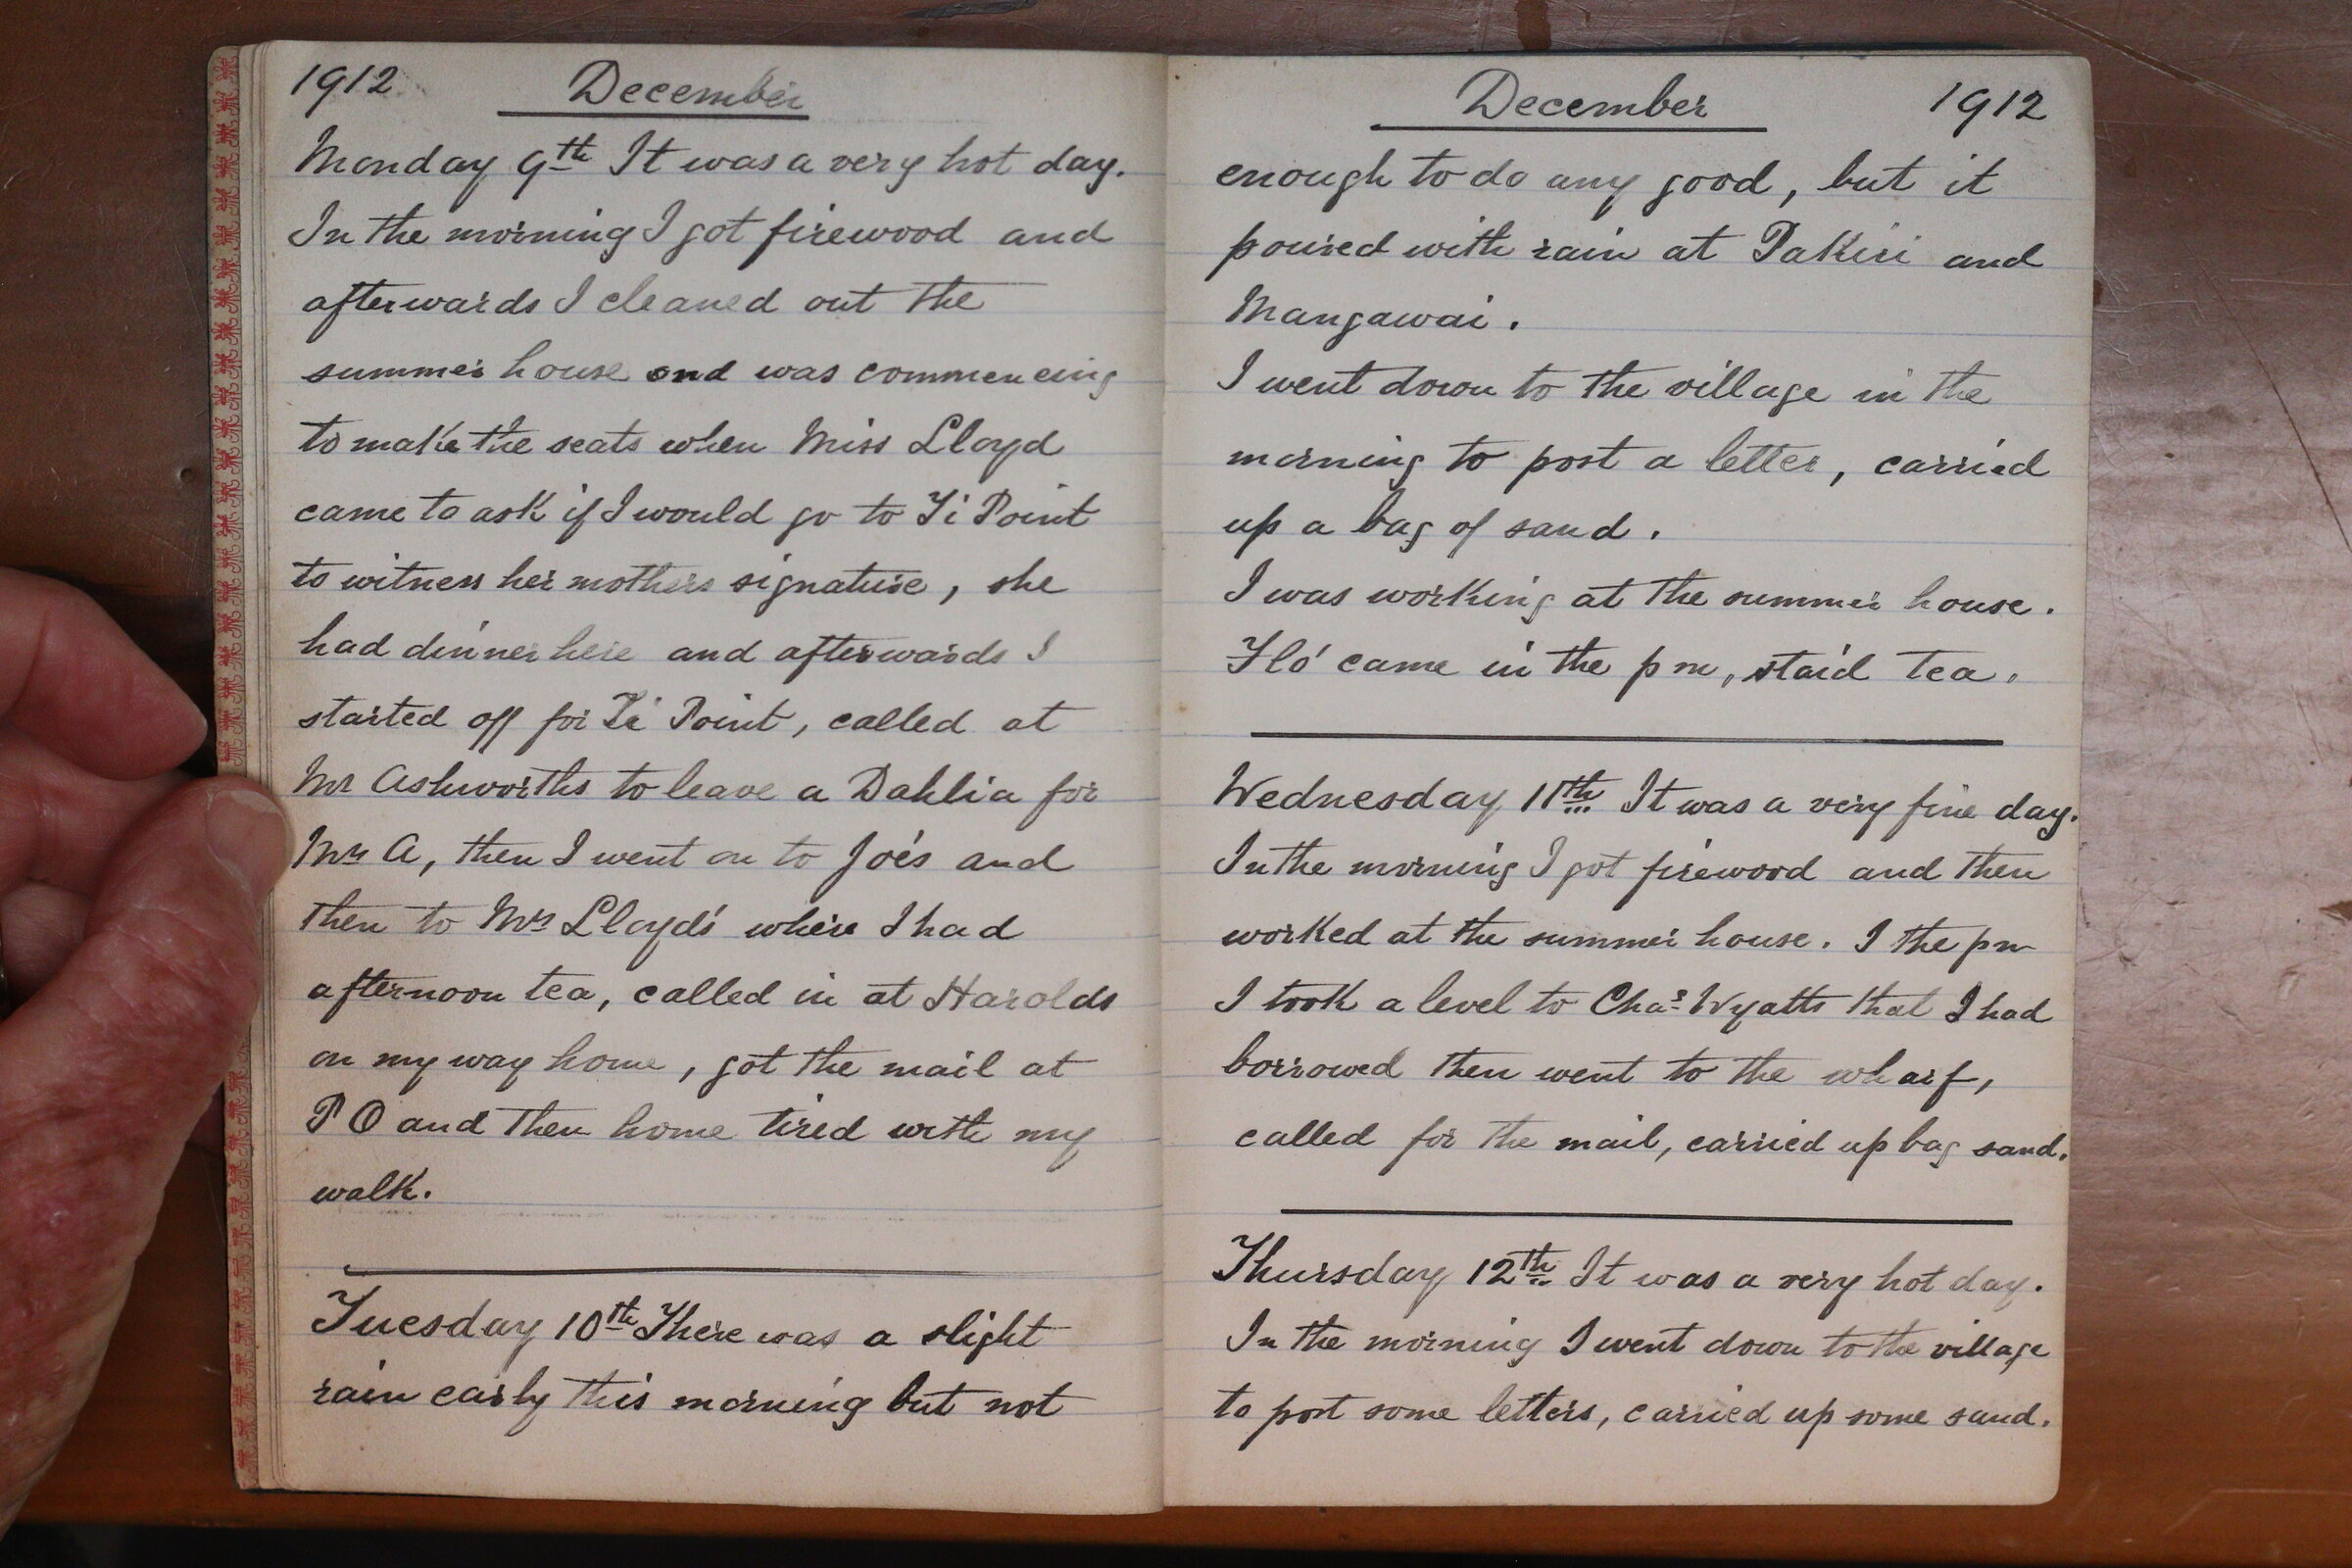 1912 December
Monday 9th It was a very hot day.
In the morning I got firewood and
afterwards I cleaned out the
summer house and was commencing
to make the seats when Miss Lloyd
came to ask if I would go to Ti Point
to witness her mothers signature, she
had dinner here and afterwards I
started off for Ti Point, called at
Mr Ashworths to leave a Dahlia for
Mrs A, then I went on to Joe's and
then to Mrs Lloyds' where I had
afternoon tea, called in at Harolds
on my way home, got the mail at
P O and then home tired with my
walk.
Tuesday 10th There was a slight
rain early this morning but not
December 1912
enough to do any good, but it
poured with rain at Pakiri and
Mangawai.
I went down to the village in the
morning to post a letter, carried
up a bag of sand.
I was working at the summer house.
Flo' came in the pm, staid tea.
Wednesday 11th It was a very fine day.
In the morning I got firewood and then
worked at the summer house. I the pm
I took a level to Chas Wyatts that I had
borrowed then went to the wharf,
called for the mail, carried up bag sand.
Thursday 12th It was a very hot day.
In the morning I went down to the village
to post some letters, carried up some sand.